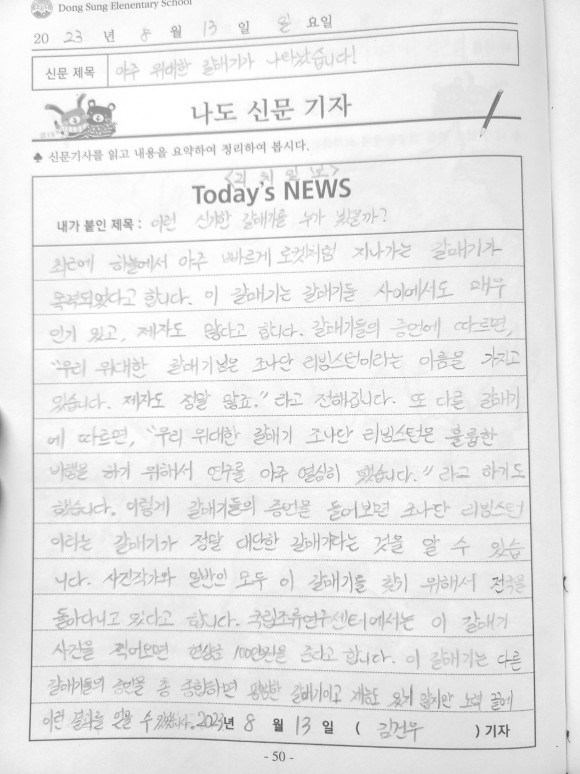 Dong Sung Elementary School
20 23 년 8 월 13 일 일 요일
신문 제목 아주 위대한 갈매기가 나타났습니다!
나도 신문 기자
♣ 신문기사를 읽고 내용을 요약하여 정리하여 봅시다.
Today's NEWS
내가 붙인 제목 : 이런 신기한 갈매기를 누가 봤을까?
최근에 하늘에서 아주 빠르게 로켓처럼 지나가는 갈매기가
목격되었다고 합니다. 이 갈매기는 갈매기들 사이에서도 매우
인기 있고, 제자도 많다고 합니다. 갈매기들의 증언에 따르면,
"우리 위대한 갈매기님은 조나단 리빙스턴이라는 이름을 가지고
있습니다. 제자도 정말 많죠." 라고 전해집니다. 또 다른 갈매기
에 따르면, "우리 위대한 갈매기 조나단 리빙스턴은 훌륭한
비행을 하기 위해서 연구를 아주 열심히 했습니다." 라고 하기도
했습니다. 이렇게 갈매기들의 증언을 들어보면 조나단 리빙스턴
이라는 갈매기가 정말 대단한 갈매기라는 것을 알 수 있습
니다. 사진작가와 일반인 모두 이 갈매기를 찾기 위해서 전국을
돌아다니고 있다고 합니다. 국립조류연구센터에서는 이 갈매기
사진을 찍어오면 현상금 100만원을 준다고 합니다. 이 갈매기는 다른
갈매기들의 증언을 총 종합하면 평범한 갈매기이고 노력 끝에
이런 결과를 얻을 수 있었습니다. 2023년 8 월 13 일 ( 김건우 ) 기자
- 50 -